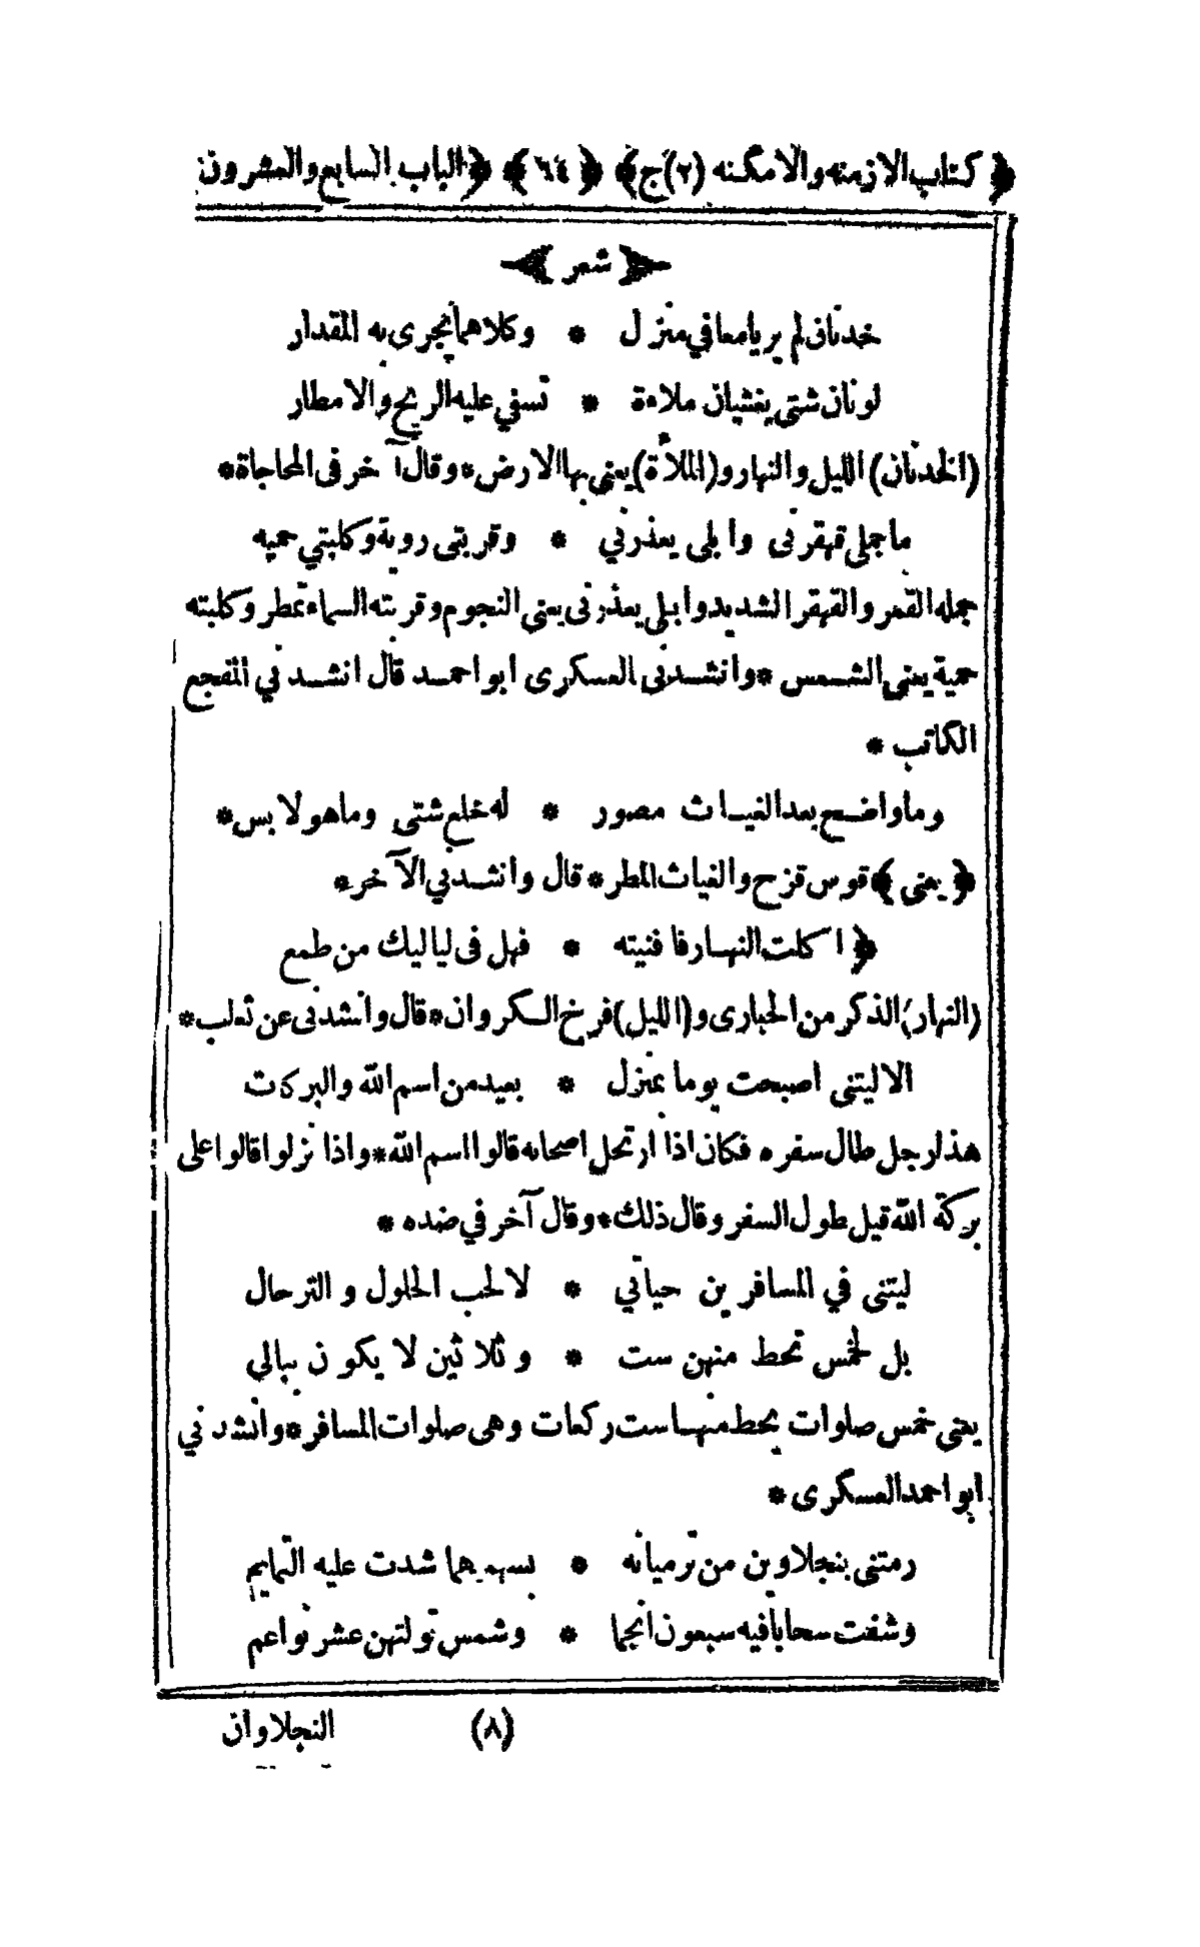 ﴿ كتاب الازمنه والامكنه (٢) ج﴾ ﴿ ٦٤ ﴾ ﴿الباب السابع والعشرون
﴿ شعر ﴾
خدنان لم يريامعافي منزل * وكلاهما يجرى به المقدار
لونان شتى يغشيان ملاءة * تسفي عليه الريح والامطار
(الخدنان) الليل والنهار و(الملأة) يعنى بها الارض* وقال آخر فى المحاجاة*
ما جملى قهقرنى وابلى يعذرني * وقربتى روية وكلبتي حميه
جمله القمر والقهقر الشديد وابلى يعذرنى يعنى النجوم وقربته السماء تمطر وكلبته
حمية يعنى الشمس * وانشدنى العسكرى ابو احمد قال انشدني المفجع
الكاتب *
وما واضح بعد الغياث مصور * له خلع شتى وما هو لابس*
﴿ يعنى ﴾ قوس قزح والغياث المطر * قال وانشدني الآخر*
﴿ ا كلت النهار فافنيته * فهل فى لياليك من طمع
(النهار) الذكر من الحبارى و(الليل) فرخ الكروان* قال وانشدنى عن ثعلب*
الا ليتنى اصبحت يوما بمنزل * بعيد من اسم الله والبركات
هذا رجل طال سفره فكان اذا ارتحل اصحابه قالوا اسم الله* واذا نزلوا قالوا على
بركة الله قيل طول السفر وقال ذلك* وقال آخر في ضده *
ليتنى في المسافرين حياتي * لا لحب الحلول و الترحال
بل لخمس تحط منهن ست * و ثلاثين لا يكون ببالي
يعنى خمس صلوات يحط منها ست ركعات وهى صلوات المسافر* وانشدني
ابو احمد العسكرى *
رمتنى بنجلاوين من ترميانه * بسهميهما شدت عليه التمايم
وشفت سحابا فيه سبعون انجما * وشمس تولتهن عشر نواعم
(٨) النجلاوان